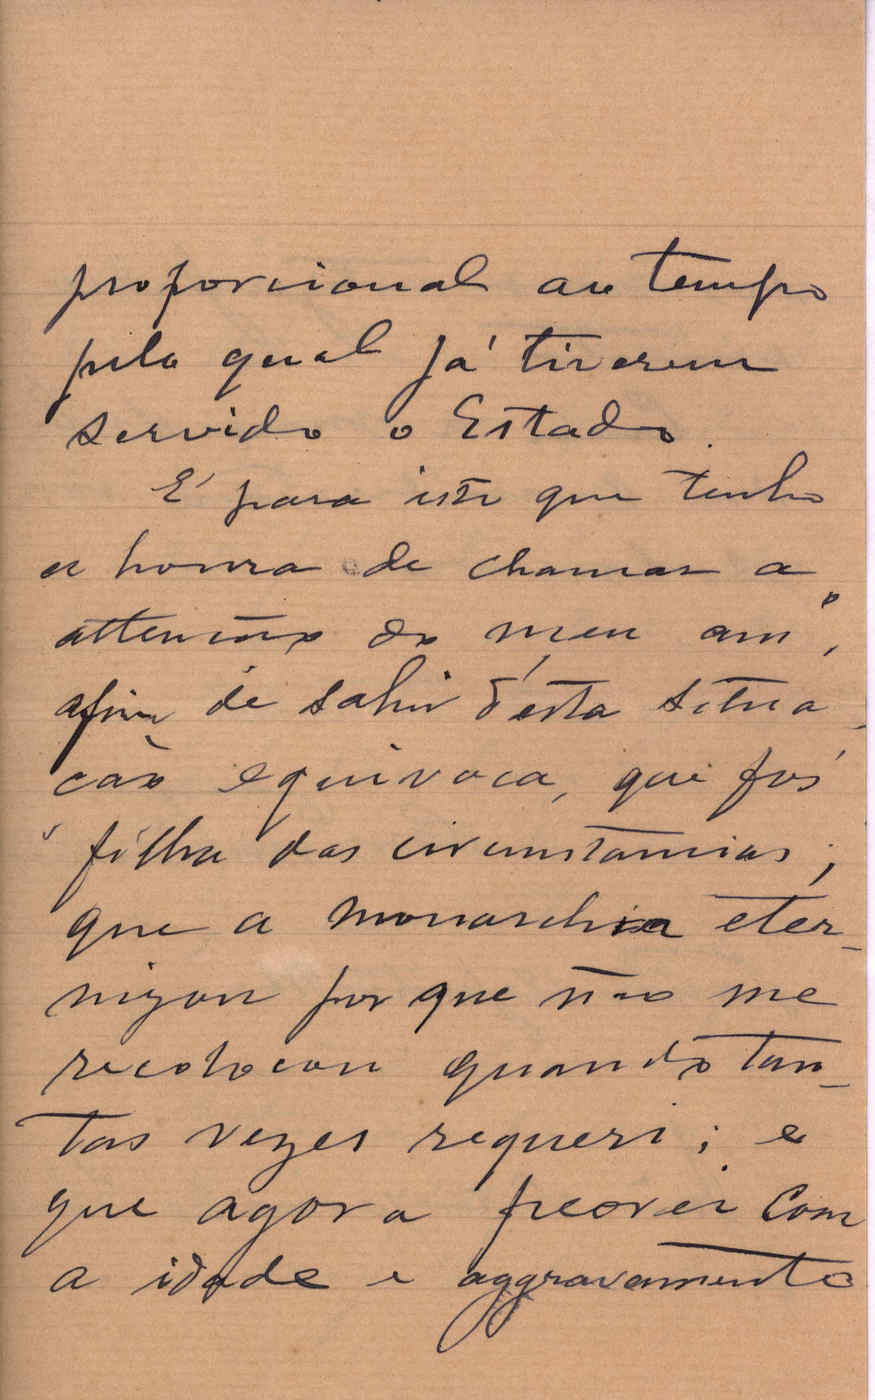 proporcional ao tempo
pelo qual já tiverem
servido o Estado.
É para isto que tenho
a honra de chamar a
attenção do meu amº,
afim de sahir d'esta situa-
ção equivoca, que foi
filha das circunstancias;
que a monarchia eter-
nizou porque não me
recolocou quando tan-
tas vezes requeri; e
que agora peorei com
a idade e aggravamento